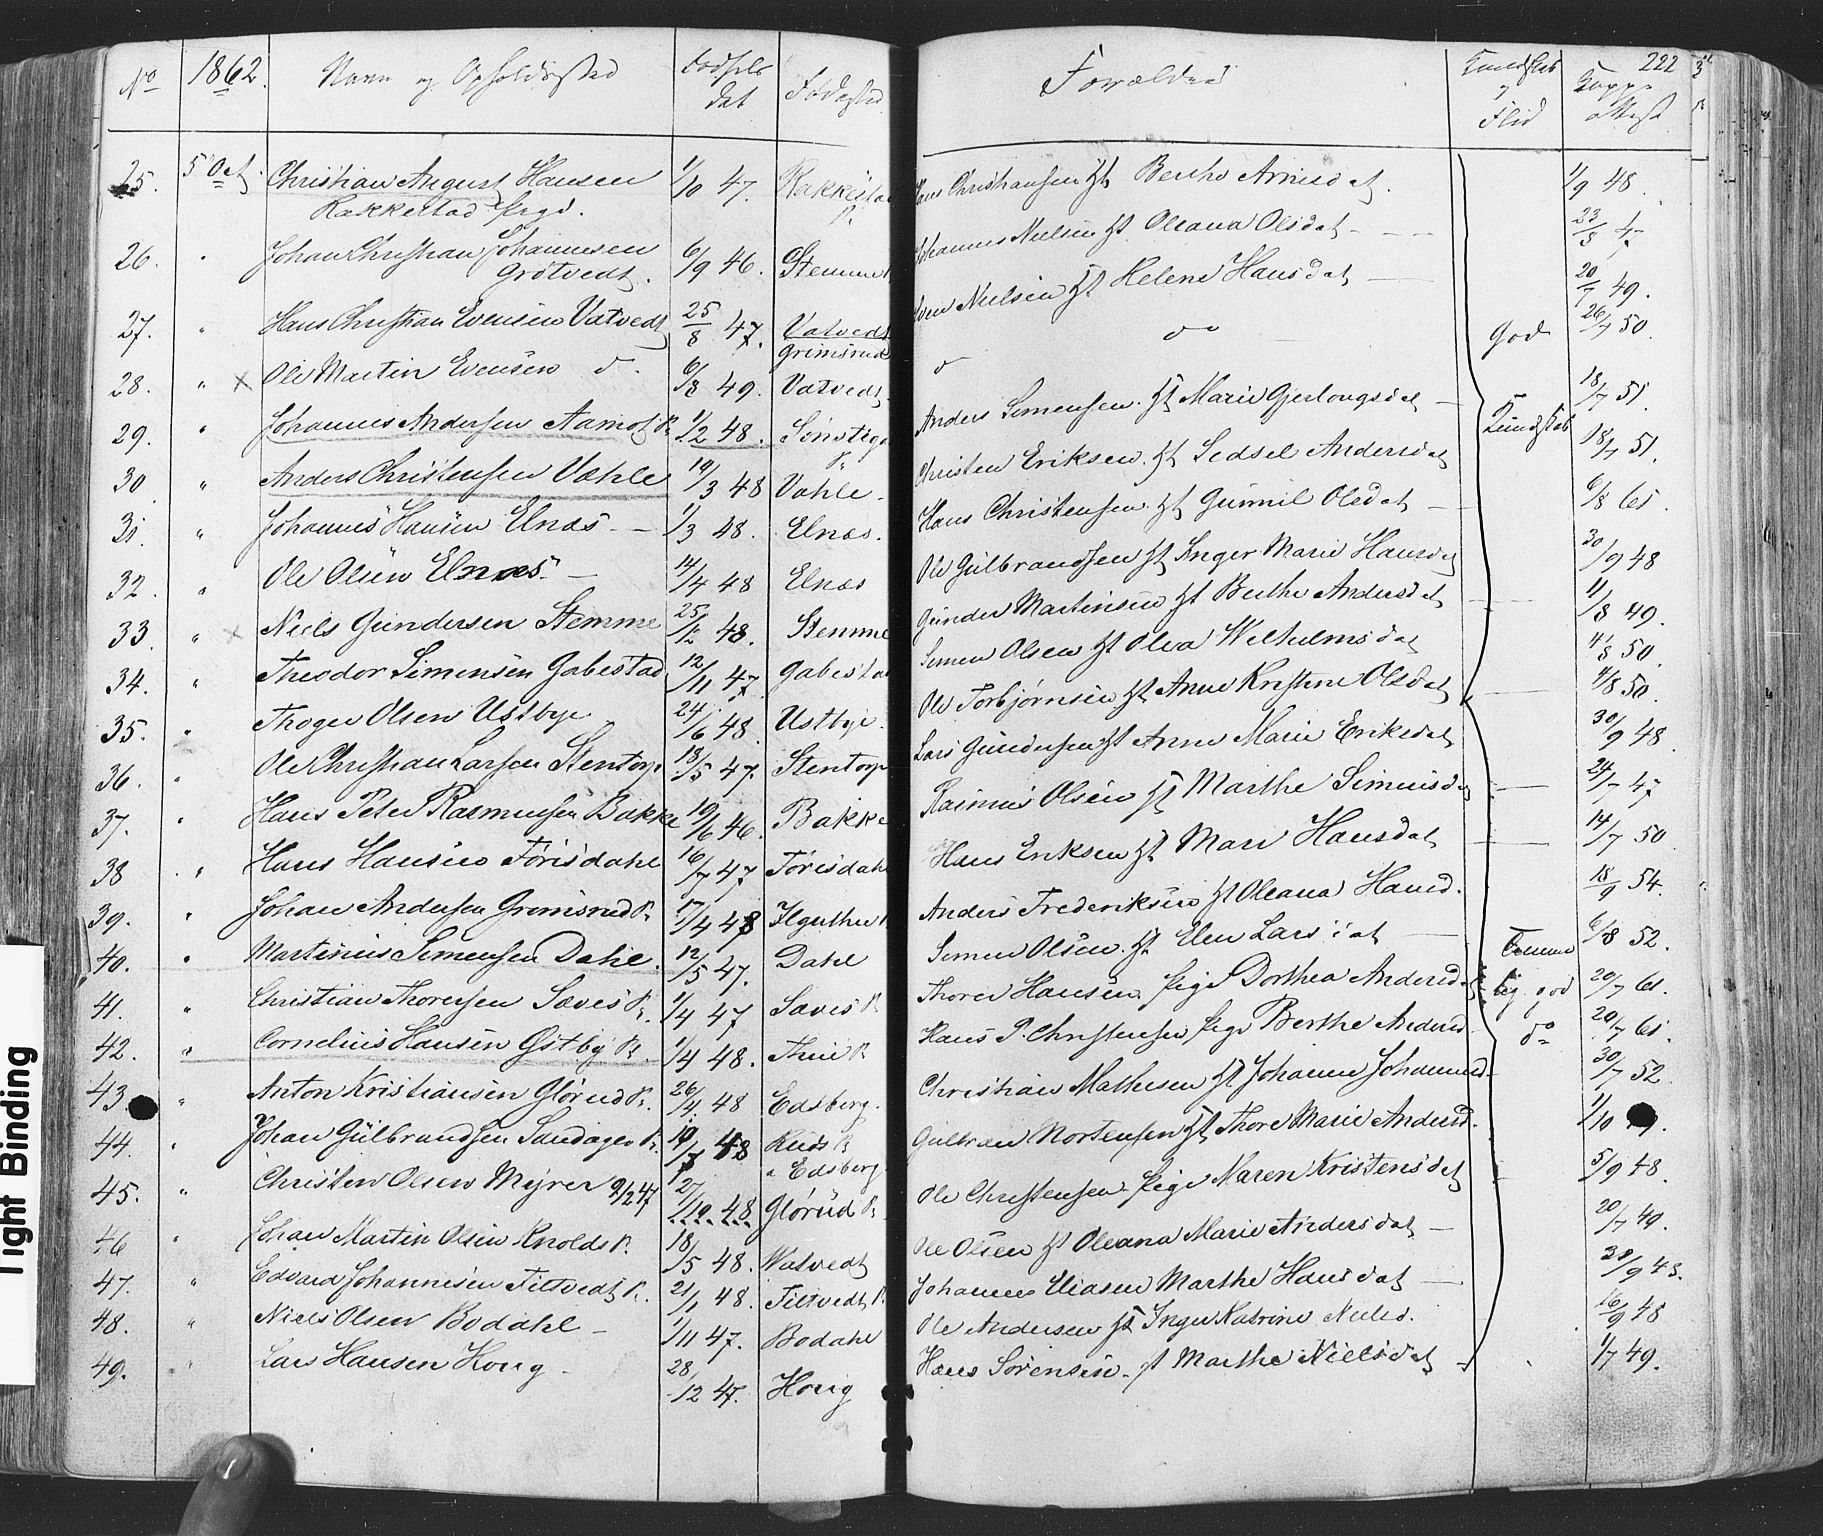 No 1862. Navn og Opholdssted Fødsels dat Fødested Forældre Kundskab & Flid Koppe attest 222
25. 5 Oct. Christian August Hansen 1/10 47. Rakkestad Hans Christiansen Berthe Arnesdat. 1/9 48.
Rakkestad Prgd.
26. " Johan Christian Johannesen 6/9 46. Stemme Johannes Nielsen Oleana Olsdat
Grøtvedt.
27. " Hans Christian Evensen Vatvedt 25/8 47. Vatvedt Even Nielsen Helene Hansdat 20/7 49.
Grimsrud
28. " Ole Martin Evensen do. 6/8 49. Vatvedt do do God 26/7 50.
29. " Johannes Andersen Aamot P. 1/2 48. Anders Simensen Marie Gjerlougsdat Kundskab 18/7 51.
30 " Anders Christensen Vahle 14/3 48 Vahle. Christen Eriksen Sedsel Andersdat 18/7 51.
31. " Johannes Hansen Elnæs 1/3 48. Elnæs. Hans Christensen Gunnil Olsdat 6/8 61.
32. " Ole Olsen Elnæs. 14/4 48 Elnæs Ole Gulbrandsen Inger Marie Hansdat 30/9 48
33. " Niels Gundersen Stemme 25/12 48. Stemme Gunder Martinsen Berthe Andersdat 1/8 49.
34. " Theodor Simensen Gabestad 12/11 47 Gabestad Simen Olsen Olea Wilhelmsdat 4/8 50.
35. " Thoger Olsen Ustbye 24/6 48. Ustbye. Ole Torbjørnsen Anne Kristine Olsdat 4/8 50.
36. " Ole Christian Larsen Stentorp 18/5 47. Stentorp Lars Gundersen Anne Marie Eriksdat 30/9 48.
37. " Hans Peter Rasmusen Bakke 19/6 46. Bakke Rasmus Olsen Marthe Simensdat 24/7 47
38 " Hans Hansen Torisdahl 16/7 47 Torisdahl Hans Eriksen Mari Hansdat 14/7 50.
39. " Johan Andersen Grimsrud P. 17/4 48 Anders Frederiksen Oleana Hansd. 18/9 54.
40. " Martinius Simensen Dahl. 12/5 47. Dahl Simen Olsen Elen Larsdat 6/8 52.
41. " Christian Thoresen Saves P. 1/4 47 Saves P. Thorer Hansen Pige Dorthea Andersd. god 20/7 61.
42. " Cornelius Hansen Østby P. 1/4 48. Hans P. Christensen Pige Berthe Andersd. do 20/7 61.
43. " Anton Kristiansen Glørud P. 26/4 48 Edsberg. Christian Mathesen Johanne Johannesd. 30/7 52
44. " Johan Gulbrandsen Sandager P. 48 Ruds P. Gulbran Mortensen Thore Marie Andersd. 1/10
Edsberg
45. " Christen Olsen Myrer 9/2 47 27/10 48 Glørud P. Ole Christensen Pige Maren Kristensdat 5/9 48.
46 " Johan Martin Olsen 18/5 48. Watvedt Ole Olsen Oleana Marie Andersdat 20/7 49.
47. " Edvard Johannesen Filtvedt P. 21/1 48. Filtvedt P. Johannes Eliasen Marthe Hansdat
48. " Niels Olsen Bodahl 1/11 47. Bodahl Ole Andersen Inger Katrine Nielsd. 16/9 48
49. " Lars Hansen Houg 28/12 47. Houg Hans Sørensen Marthe Nielsdat 1/7 49.
Tight Binding